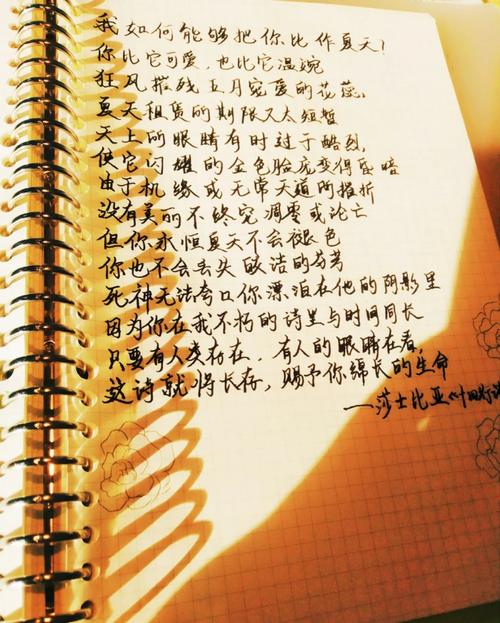 我如何能够把你比作夏天？
你比它可爱，也比它温婉
狂风摧残五月宠爱的花蕊，
夏天租赁的期限又太短暂
天上的眼睛有时过于酷烈，
使它闪耀的金色脸庞变得昏暗
由于机缘或无常天道所摧折
没有美丽不终究凋零或论亡
但你永恒夏天不会褪色
你也不会丢失皎洁的芬芳
死神无法夸口你漂泊在他的阴影里
因为你在我不朽的诗里与时间同长
只要有人类存在，有人的眼睛在看，
这诗就将长存，赐予你绵长的生命
——莎士比亚《十四行